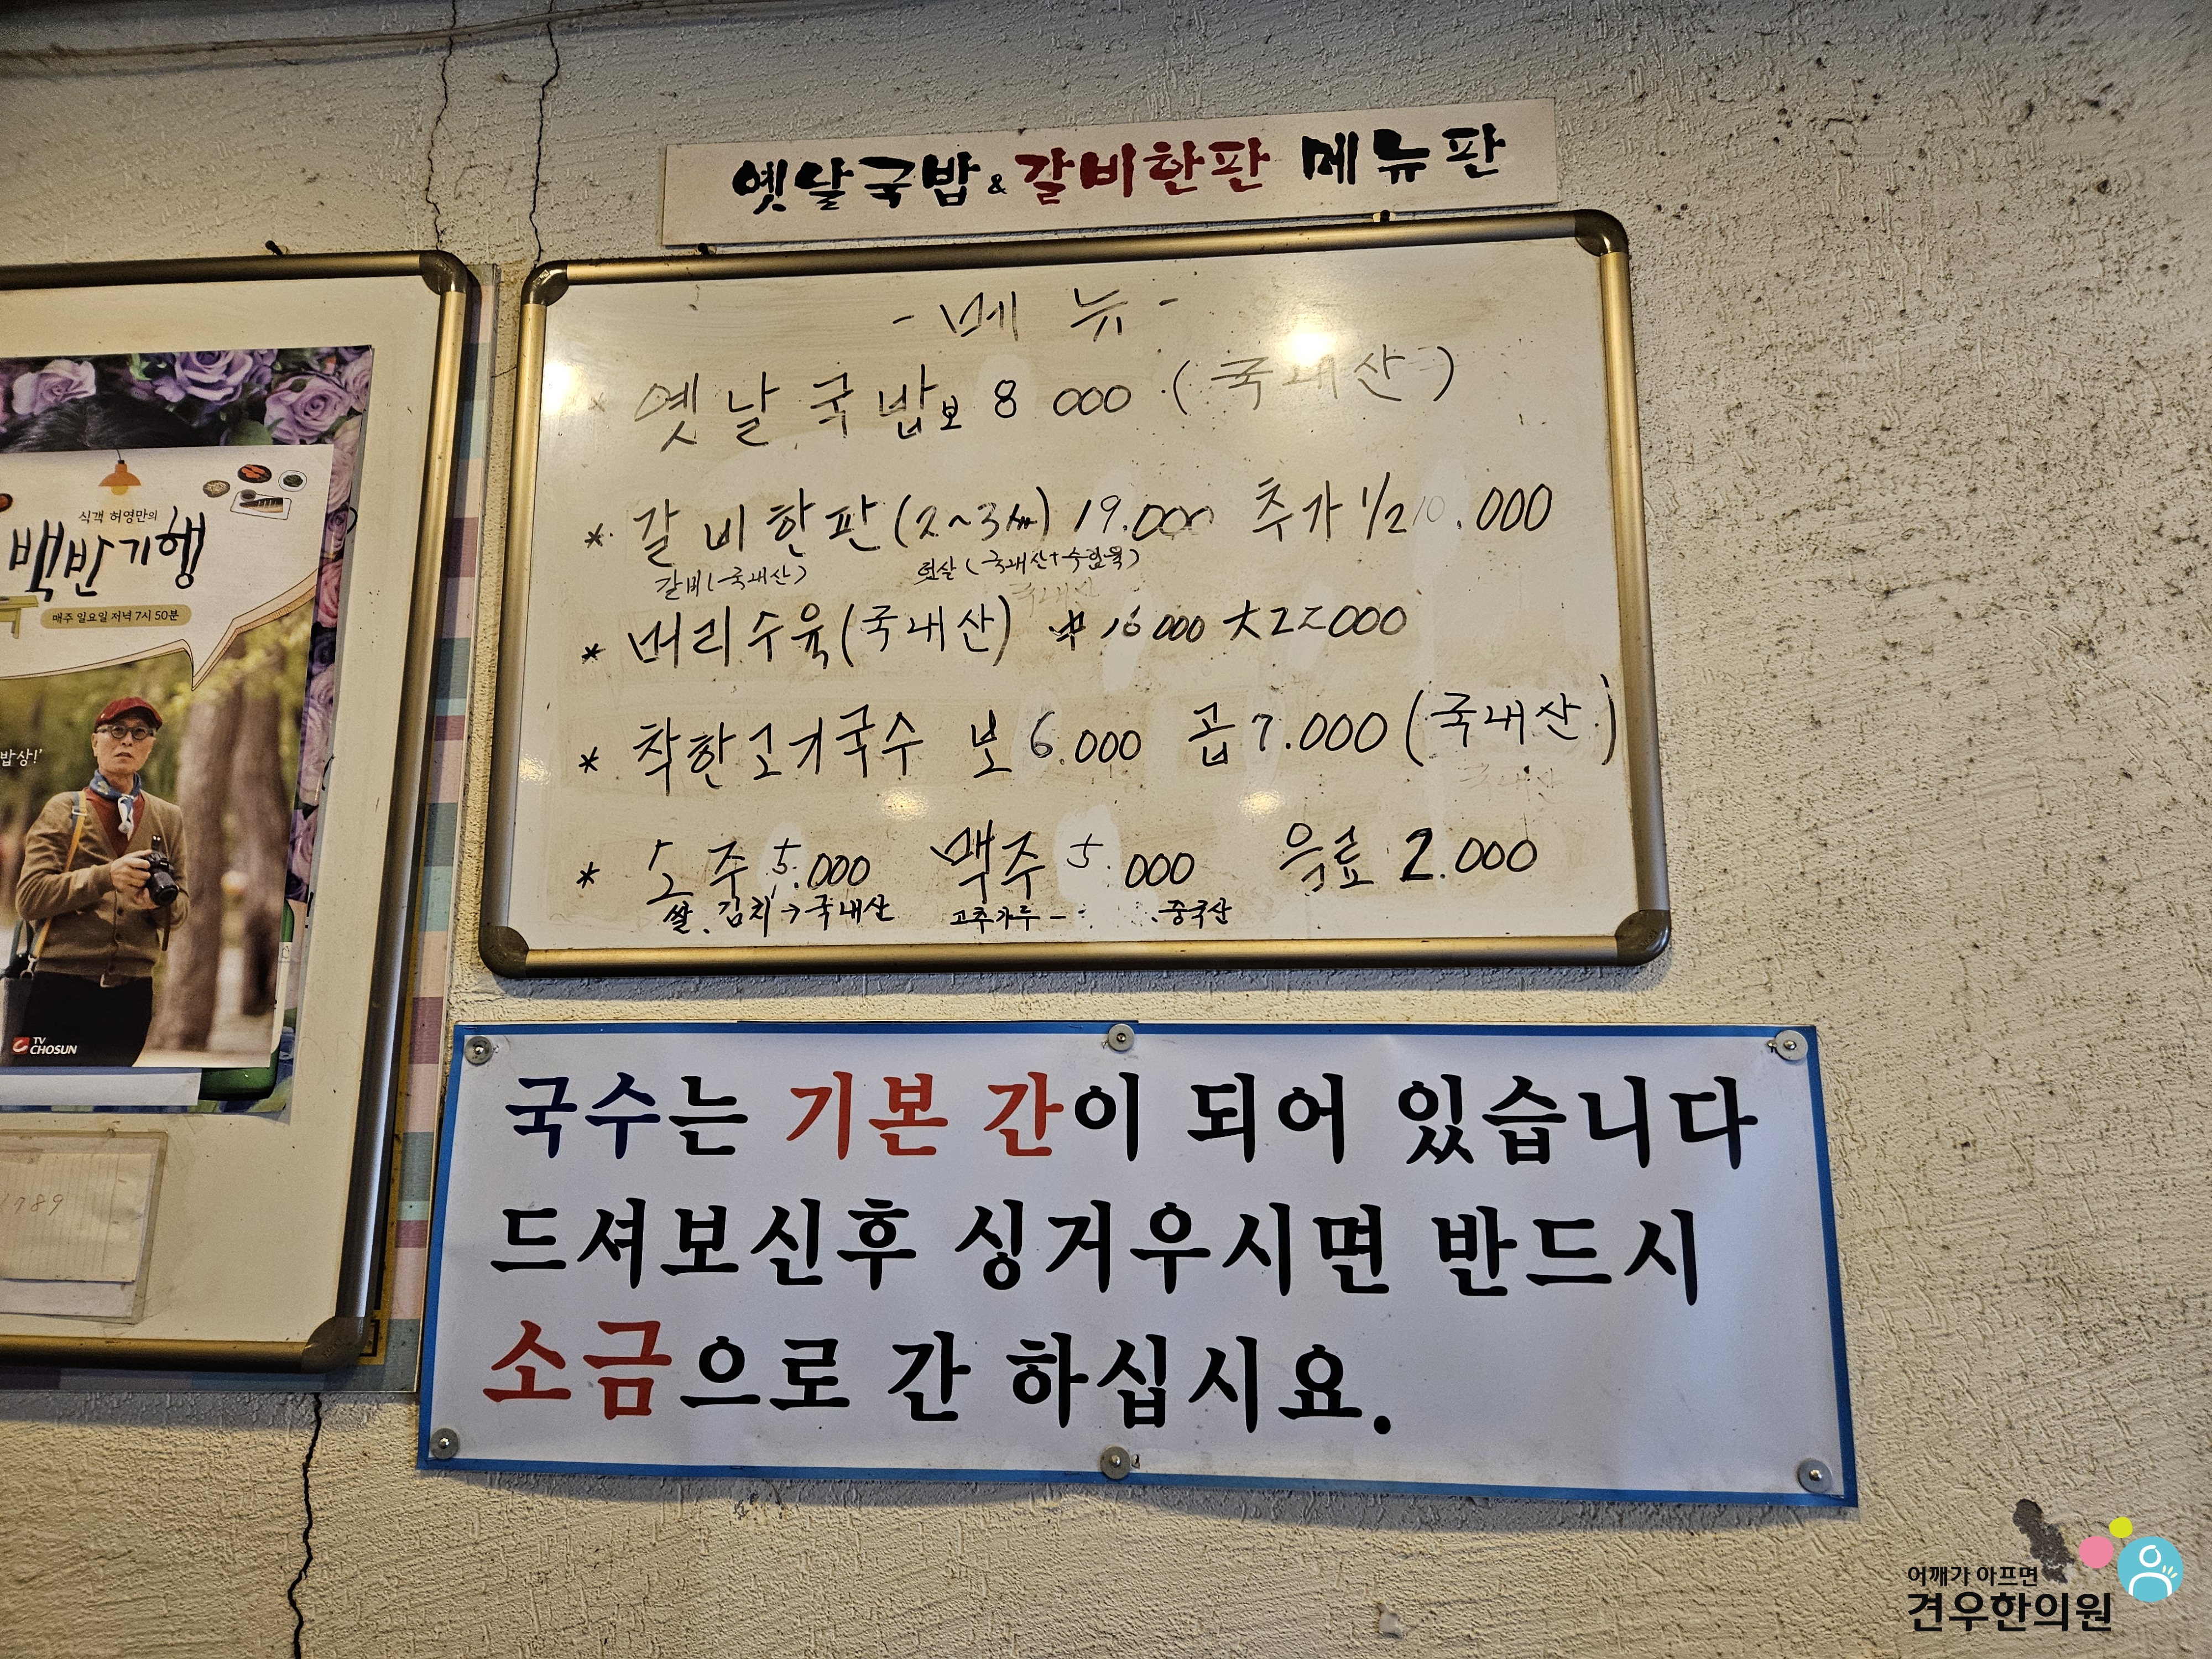 옛날국밥&갈비한판 메뉴판
- 메 뉴 -
* 옛날국밥 보 8 000 (국내산)
* 갈비한판 (2~3人) 19.000 추가 1/2 10.000
갈비(국내산) (국내산+수입육)
* 머리수육(국내산) 中 16000 大 22000
* 착한고기국수 보 6.000 곱 7.000 (국내산)
* 소주 5.000 맥주 5.000 음료 2.000
쌀. 김치 → 국내산 고추가루 - 중국산
국수는 기본 간이 되어 있습니다
드셔보신후 싱거우시면 반드시
소금으로 간 하십시요.
식객 허영만의
백반기행
매주 일요일 저녁 7시 50분
밥상!'
TV
CHOSUN
1789
어깨가 아프면
견우한의원